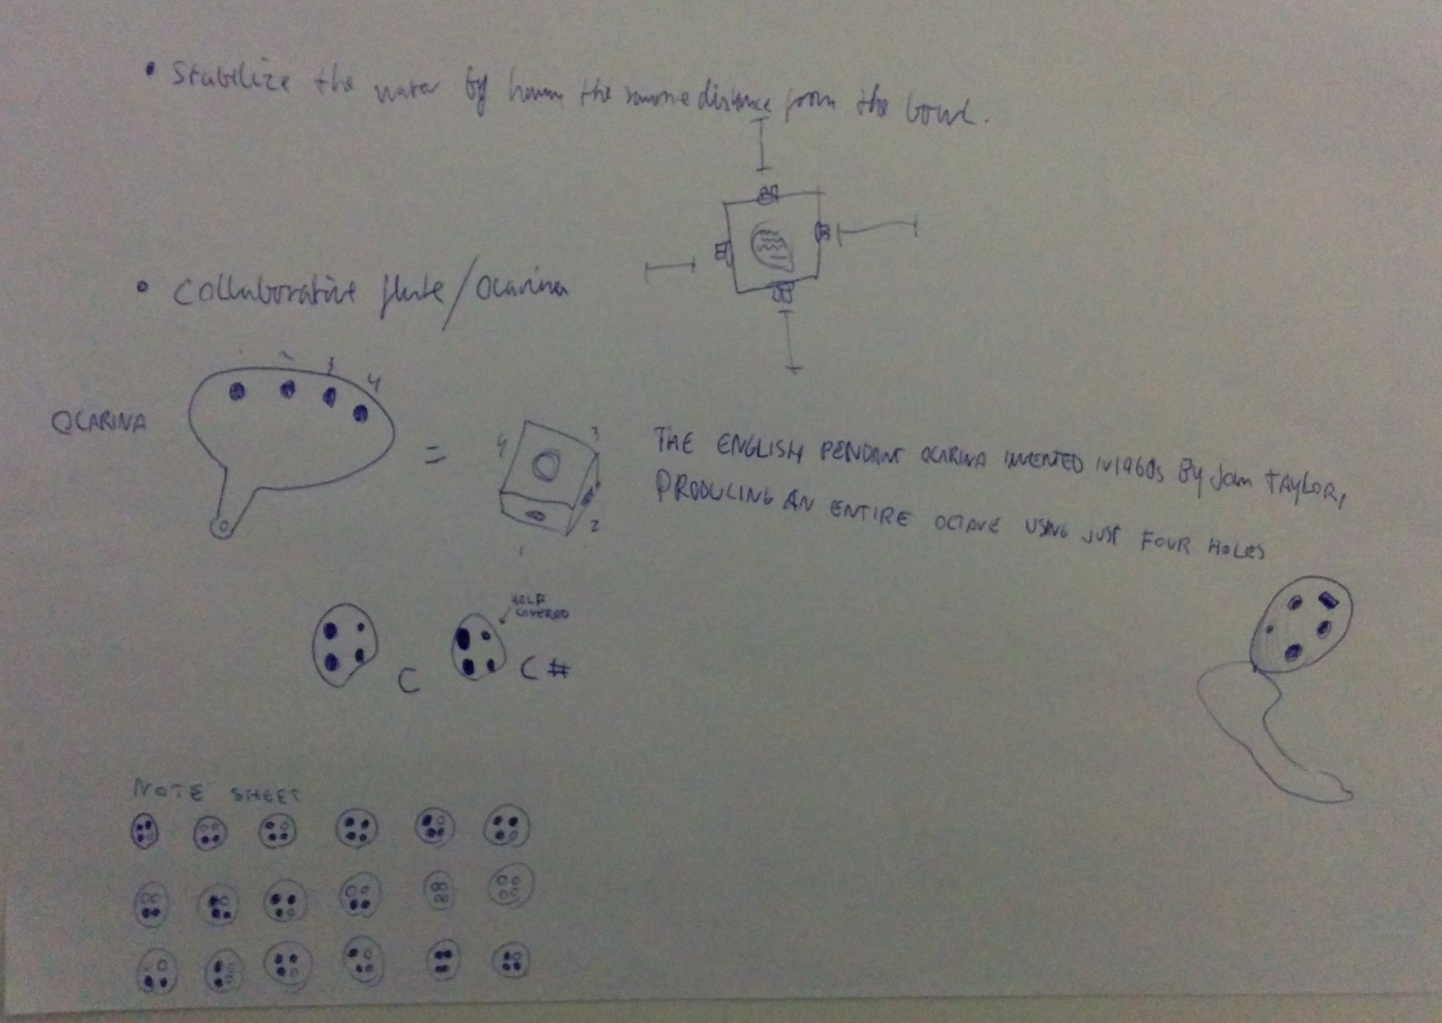 • Stabilize the water by having the same distance from the bowl.
• Collaborative flute/Ocarina
2 3 4
OCARINA
=
4 3
2
1
THE ENGLISH PENDANT OCARINA INVENTED IN 1960s BY John TAYLOR,
PRODUCING AN ENTIRE OCTAVE USING JUST FOUR HOLES
HALF
COVERED
C
C #
NOTE SHEET